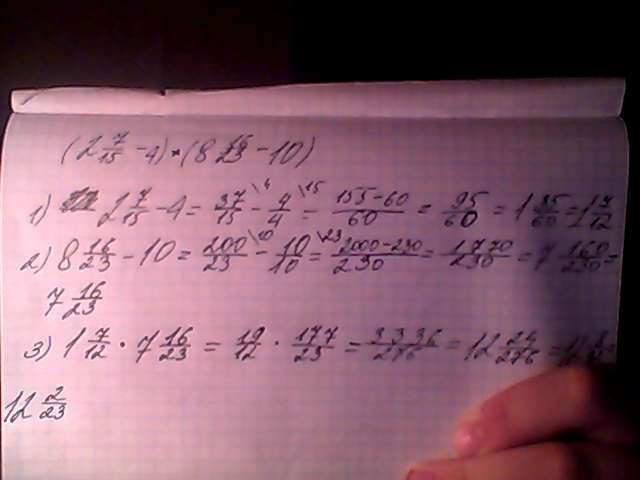 (2 7/15 - 4) * (8 16/23 - 10)
1) 2 7/15 - 4 = 37/15 \4 - 4/4 \15 = 155-60/60 = 95/60 = 1 35/60 = 1 7/12
2) 8 16/23 - 10 = 200/23 \10 - 10/10 \23 = 2000-230/230 = 1770/230 = 7 160/230 =
7 16/23
3) 1 7/12 · 7 16/23 = 19/12 · 177/23 = 3336/276 = 12 24/276 =
12 2/23